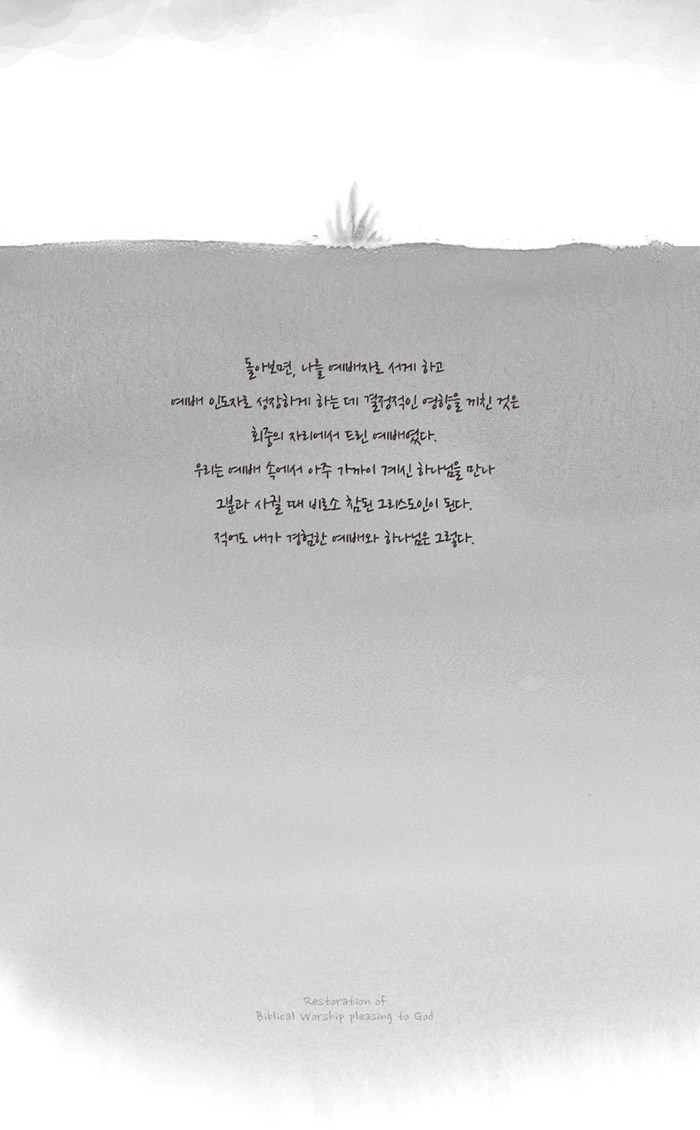 돌아보면, 나를 예배자로 서게 하고
예배 인도자로 성장하게 하는 데 결정적인 영향을 끼친 것은
회중의 자리에서 드린 예배였다.
우리는 예배 속에서 아주 가까이 계신 하나님을 만나
그분과 사귈 때 비로소 참된 그리스도인이 된다.
적어도 내가 경험한 예배와 하나님은 그렇다.
Restoration of
Biblical Worship pleasing to God